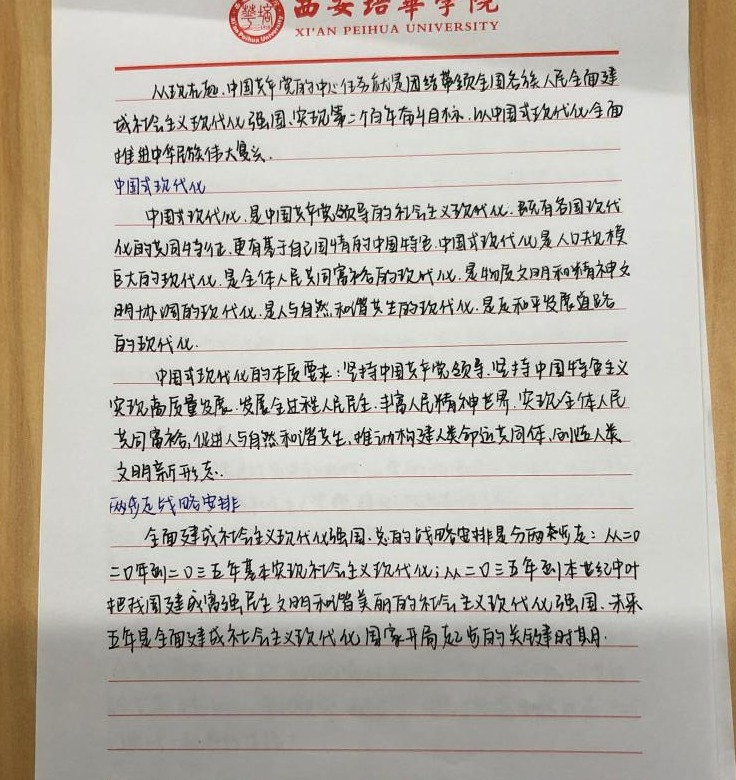 西安培华学院
XI'AN PEIHUA UNIVERSITY
从现在起,中国共产党的中心任务就是团结带领全国各族人民全面建
成社会主义现代化强国、实现第二个百年奋斗目标,以中国式现代化全面
推进中华民族伟大复兴.
中国式现代化
中国式现代化,是中国共产党领导的社会主义现代化,既有各国现代
化的共同特征,更有基于自己国情的中国特色.中国式现代化是人口规模
巨大的现代化,是全体人民共同富裕的现代化,是物质文明和精神文
明协调的现代化,是人与自然和谐共生的现代化,是走和平发展道路
的现代化.
中国式现代化的本质要求:坚持中国共产党领导,坚持中国特色主义
实现高质量发展,发展全过程人民民主,丰富人民精神世界,实现全体人民
共同富裕,促进人与自然和谐共生,推动构建人类命运共同体,创造人类
文明新形态.
两步走战略安排
全面建成社会主义现代化强国,总的战略安排是分两步走:从二〇
二〇年到二〇三五年基本实现社会主义现代化;从二〇三五年到本世纪中叶
把我国建成富强民主文明和谐美丽的社会主义现代化强国.未来
五年是全面建成社会主义现代化国家开局起步的关键时期.